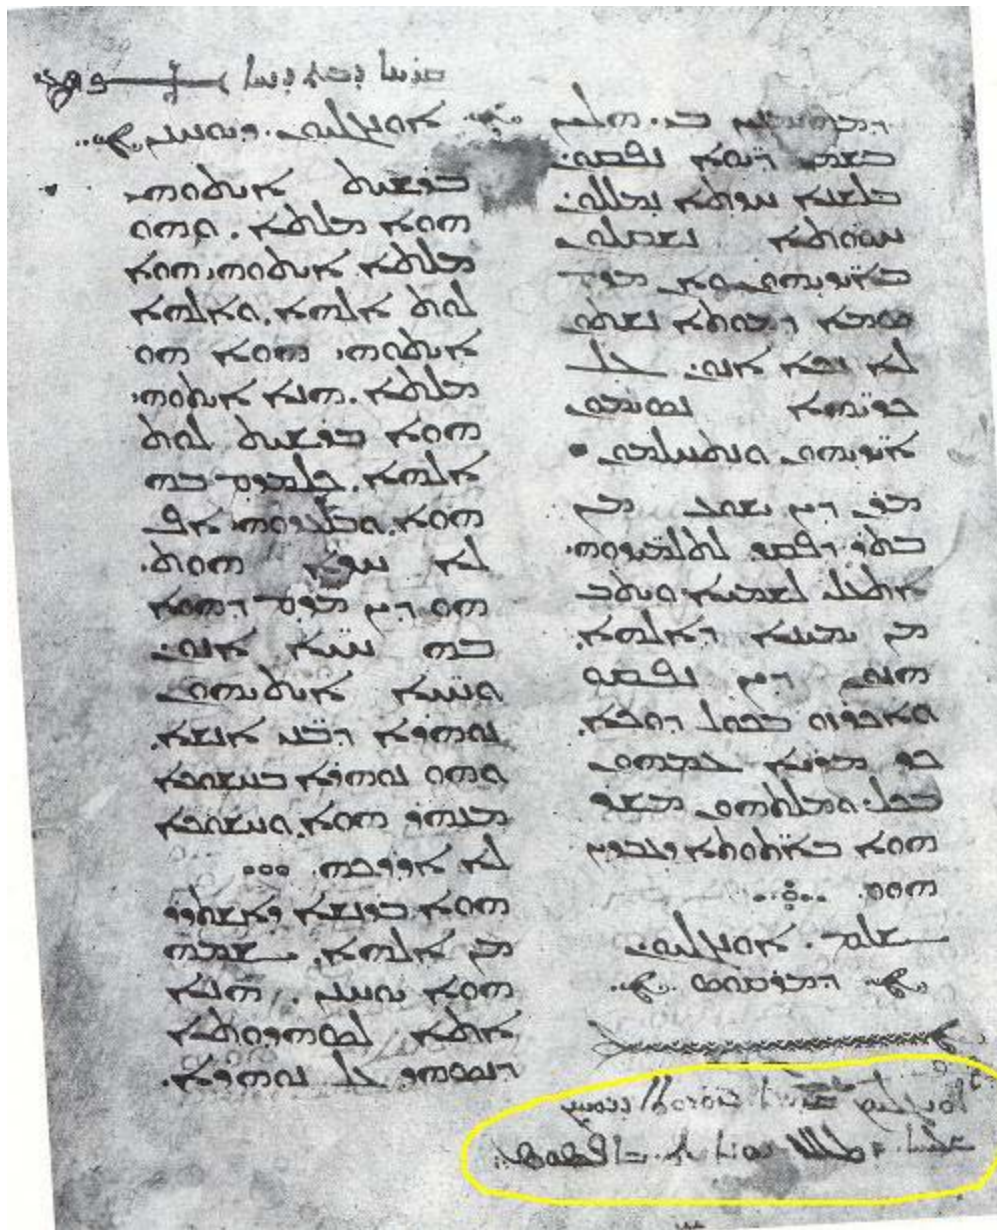 ܕܡܗܝܡܢܝܢ ܒܝ. ܗܠܝܢ
ܒܫܡܝ ܕܝܘܐ ܢܦܩܘܢ.
ܒܠܫܢܐ ܚܕܬܐ ܢܡܠܠܘܢ.
ܚܘܘܬܐ ܢܫܩܠܘܢ
ܒܐܝܕܝܗܘܢ ܘܐܢ ܡܕܡ
ܣܡܐ ܕܡܘܬܐ ܢܫܬܘܢ
ܠܐ ܢܟܐ ܐܢܘܢ. ܥܠ
ܟܪܝܗܐ ܢܣܝܡܘܢ
ܐܝܕܝܗܘܢ ܘܢܬܚܠܡܘܢ.
ܡܪܢ ܕܝܢ ܝܫܘܥ ܡܢ
ܒܬܪ ܕܦܩܕ ܠܬܠܡܝܕܘܗܝ
ܐܬܥܠܝ ܠܫܡܝܐ ܘܝܬܒ
ܡܢ ܝܡܝܢܐ ܕܐܠܗܐ.
ܗܢܘܢ ܕܝܢ ܢܦܩܘ
ܘܐܟܪܙܘ ܒܟܠ ܕܘܟܐ.
ܟܕ ܡܪܝܐ ܥܡܗܘܢ
ܒܟܠ. ܘܡܠܬܗܘܢ ܡܫܪ
ܗܘܐ ܒܐܬܘܬܐ ܕܥܒܕܝܢ
ܗܘܘ.
ܫܠܡ. ܐܘܢܓܠܝܘܢ.
ܕܡܪܩܘܣ
ܐܘܢܓܠܝܘܢ. ܕܝܘܚܢܢ
ܒܪܫܝܬ ܐܝܬܘܗܝ
ܗܘܐ ܡܠܬܐ. ܘܗܘ
ܡܠܬܐ ܐܝܬܘܗܝ ܗܘܐ
ܠܘܬ ܐܠܗܐ. ܘܐܠܗܐ
ܐܝܬܘܗܝ ܗܘܐ ܗܘ
ܡܠܬܐ. ܗܢܐ ܐܝܬܘܗܝ
ܗܘܐ ܒܪܫܝܬ ܠܘܬ
ܐܠܗܐ. ܟܠܡܕܡ ܒܗ
ܗܘܐ. ܘܒܠܥܕܘܗܝ ܐܦ
ܠܐ ܚܕܐ ܗܘܬ.
ܗܘ ܕܝܢ ܡܕܡ ܕܗܘܐ
ܒܗ ܚܝܐ ܐܢܘܢ.
ܘܚܝܐ ܐܝܬܝܗܘܢ
ܢܘܗܪܐ ܕܒܢܝ ܐܢܫܐ.
ܘܗܘ ܢܘܗܪܐ ܒܚܫܘܟܐ
ܡܢܗܪ ܗܘܐ. ܘܚܫܘܟܐ
ܠܐ ܐܕܪܟܗ.
ܗܘܐ ܒܪܢܫܐ ܕܐܫܬܕܪ
ܡܢ ܐܠܗܐ. ܫܡܗ
ܗܘܐ ܝܘܚܢܢ. ܗܢܐ
ܐܬܐ ܠܣܗܕܘܬܐ
ܕܢܣܗܕ ܥܠ ܢܘܗܪܐ.